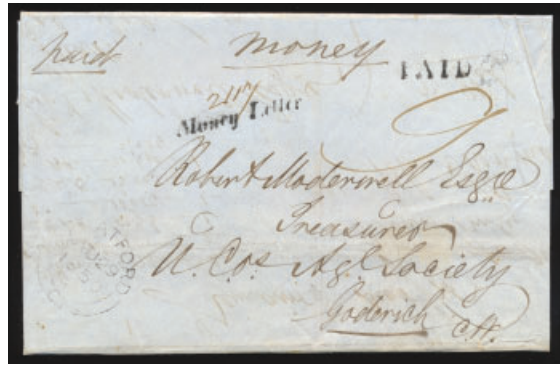 paid money PAID
Money Letter
Robert Moderwell Esqre
Treasurer
U. Cos Agl Society
Goderich C.W.